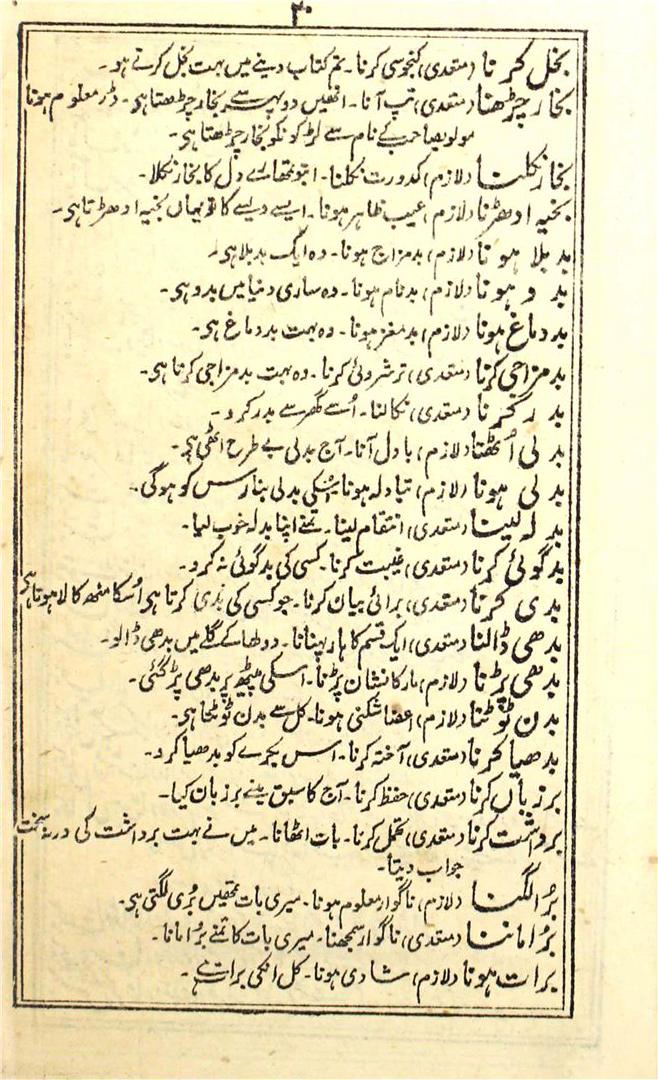 ۳۰
بخل کرنا (متعدی) کنجوسی کرنا۔ تم کتاب دینے میں بہت بخل کرتے ہو۔
بخار چڑھنا (متعدی) تپ آنا۔ انھیں دوپہر سے بخار چڑھتا ہی۔ ڈر معلوم ہونا
مولویصاحب کے نام سے لڑکونکو بخار چڑھتا ہی۔
بخار نکلنا (لازم) کدورت نکلنا۔ ابتو تمھارے دل کا بخار نکلا۔
بخیہ ادھڑنا (لازم) عیب ظاہر ہونا۔ ایسے ویسے کا تو یہاں بخیہ ادھڑتا ہی۔
بد بلا ہونا (لازم) بدمزاج ہونا۔ وہ ایک بد بلا ہی۔
بدو ہونا (لازم) بدنام ہونا۔ وہ ساری دنیا میں بدو ہی۔
بددماغ ہونا (لازم) بدمغز ہونا۔ وہ بہت بددماغ ہی۔
بدمزاجی کرنا (متعدی) ترشروئی کرنا۔ وہ بہت بدمزاجی کرتا ہی۔
بدر کرنا (متعدی) نکالنا۔ اُسے گھر سے بدر کرو۔
بدلی اُٹھنا (لازم) بادل آنا۔ آج بدلی بے طرح اٹھی ہی۔
بدلی ہونا (لازم) تبادلہ ہونا۔ اسکی بدلی بنارس کو ہوگی۔
بدلہ لینا (متعدی) انتقام لینا۔ تمنے اپنا بدلہ خوب لیا۔
بدگوئی کرنا (متعدی) غیبت کرنا۔ کسی کی بدگوئی نہ کرو۔
بدی کرنا (متعدی) برائی بیان کرنا۔ جو کسی کی بدی کرتا ہی اُسکا منھ کالا ہوتا ہی
بدھی ڈالنا (متعدی) ایک قسم کا ہار پہنانا۔ دولھا کے گلے میں بدھی ڈالو۔
بدھی پڑنا (لازم) مار کا نشان پڑنا۔ اسکی پیٹھ پر بدھی پڑگئی۔
بدن ٹوٹنا (لازم) اعضا شکنی ہونا۔ کل سے بدن ٹوٹتا ہی۔
بدھیا کرنا (متعدی) آختہ کرنا۔ اس بکرے کو بدھیا کرو۔
برزباں کرنا (متعدی) حفظ کرنا۔ آج کا سبق مینے برزبان کیا۔
برداشت کرنا (متعدی) تحمل کرنا۔ بات اٹھانا۔ میں نے بہت برداشت کی ورنہ سخت
جواب دیتا۔
بُرا لگنا (لازم) ناگوار معلوم ہونا۔ میری بات تمھیں بُری لگتی ہی۔
بُرا ماننا (متعدی) ناگوار سمجھنا۔ میری بات کا تمنے بُرا مانا۔
برات ہونا (لازم) شادی ہونا۔ کل انکی برات ہے۔